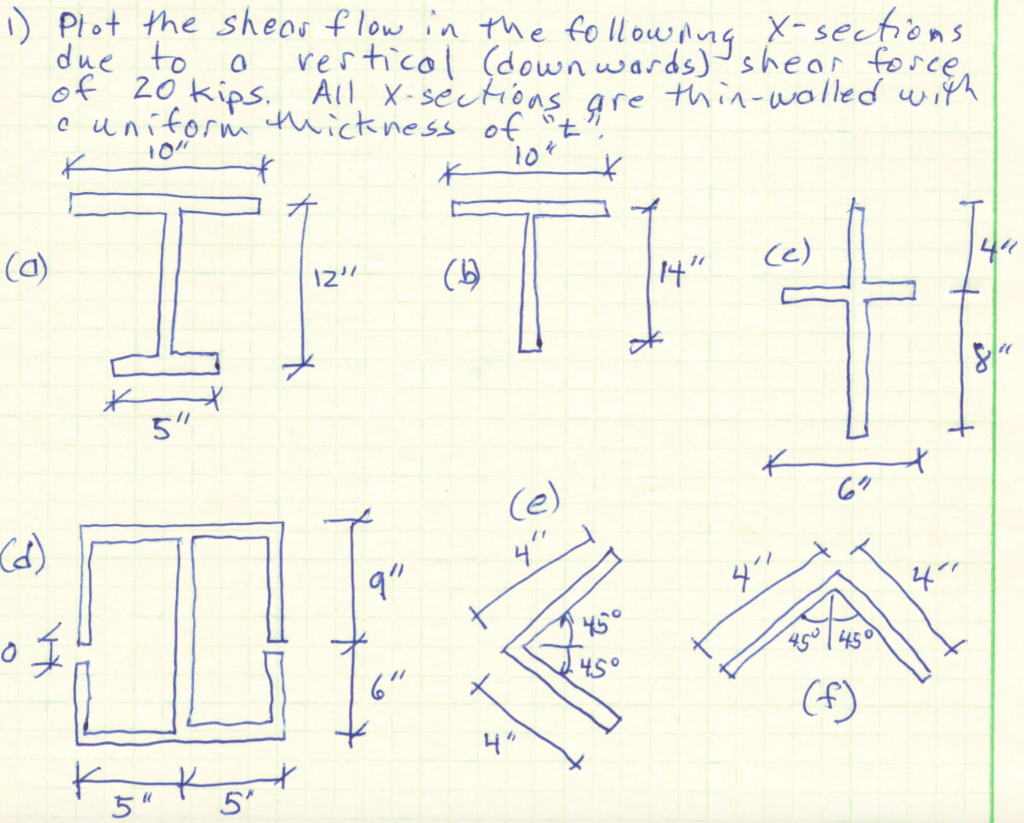 1) Plot the shear flow in the following X-sections
due to a vertical (downwards) shear force
of 20 kips. All X-sections are thin-walled with
a uniform thickness of "t".
10"
10"
(a)
12"
(b)
14"
(c)
4"
8"
5"
6"
(d)
9"
0
6"
5" 5"
(e)
4"
45°
45°
4"
4"
4"
45° 45°
(f)